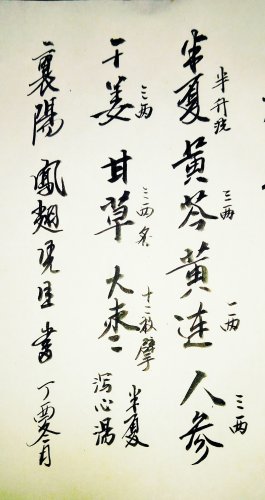 半夏半升洗黄芩三两黄连一两人参三两
干姜三两甘草三两炙大枣十二枚擘
半夏泻心汤
襄陽鳳翹
書丁酉冬月